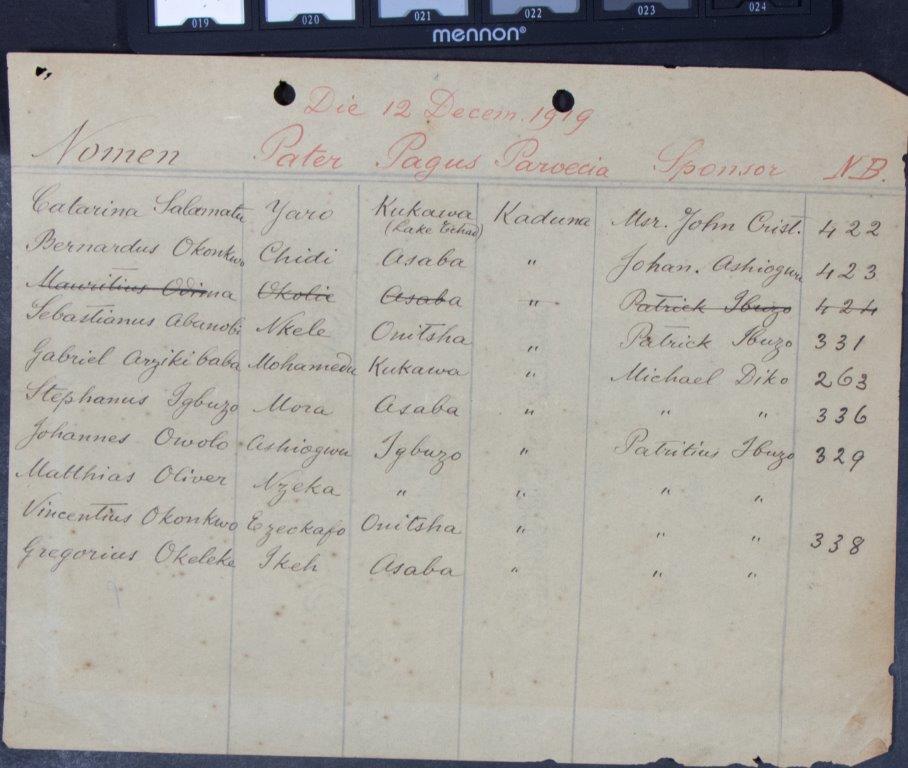 019 020 021 022 023 024
mennon®
Die 12 Decem. 1919
Nomen Pater Pagus Paroecia Sponsor N.B.
Catarina Salamatu Yaro Kukawa Kaduna Msr. John Crist. 422
(Lake Tchad)
Bernardus Okonkwo Chidi Asaba " Johan. Ashiogwu 423
Mauritius Odinma Okolie Asaba " Patrick Ibuzo 424
Sebastianus Abanobi Nkele Onitsha " Patrick Ibuzo 331
Gabriel Arzikibaba Mohamedu Kukawa " Michael Diko 263
Stephanus Igbuzo Mora Asaba " " " 336
Johannes Owolo Ashiogwu Igbuzo " Patritius Ibuzo 329
Matthias Oliver Nzeka " " " "
Vincentius Okonkwo Ezeckafo Onitsha " " " 338
Gregorius Okeleke Ikeh Asaba " " "